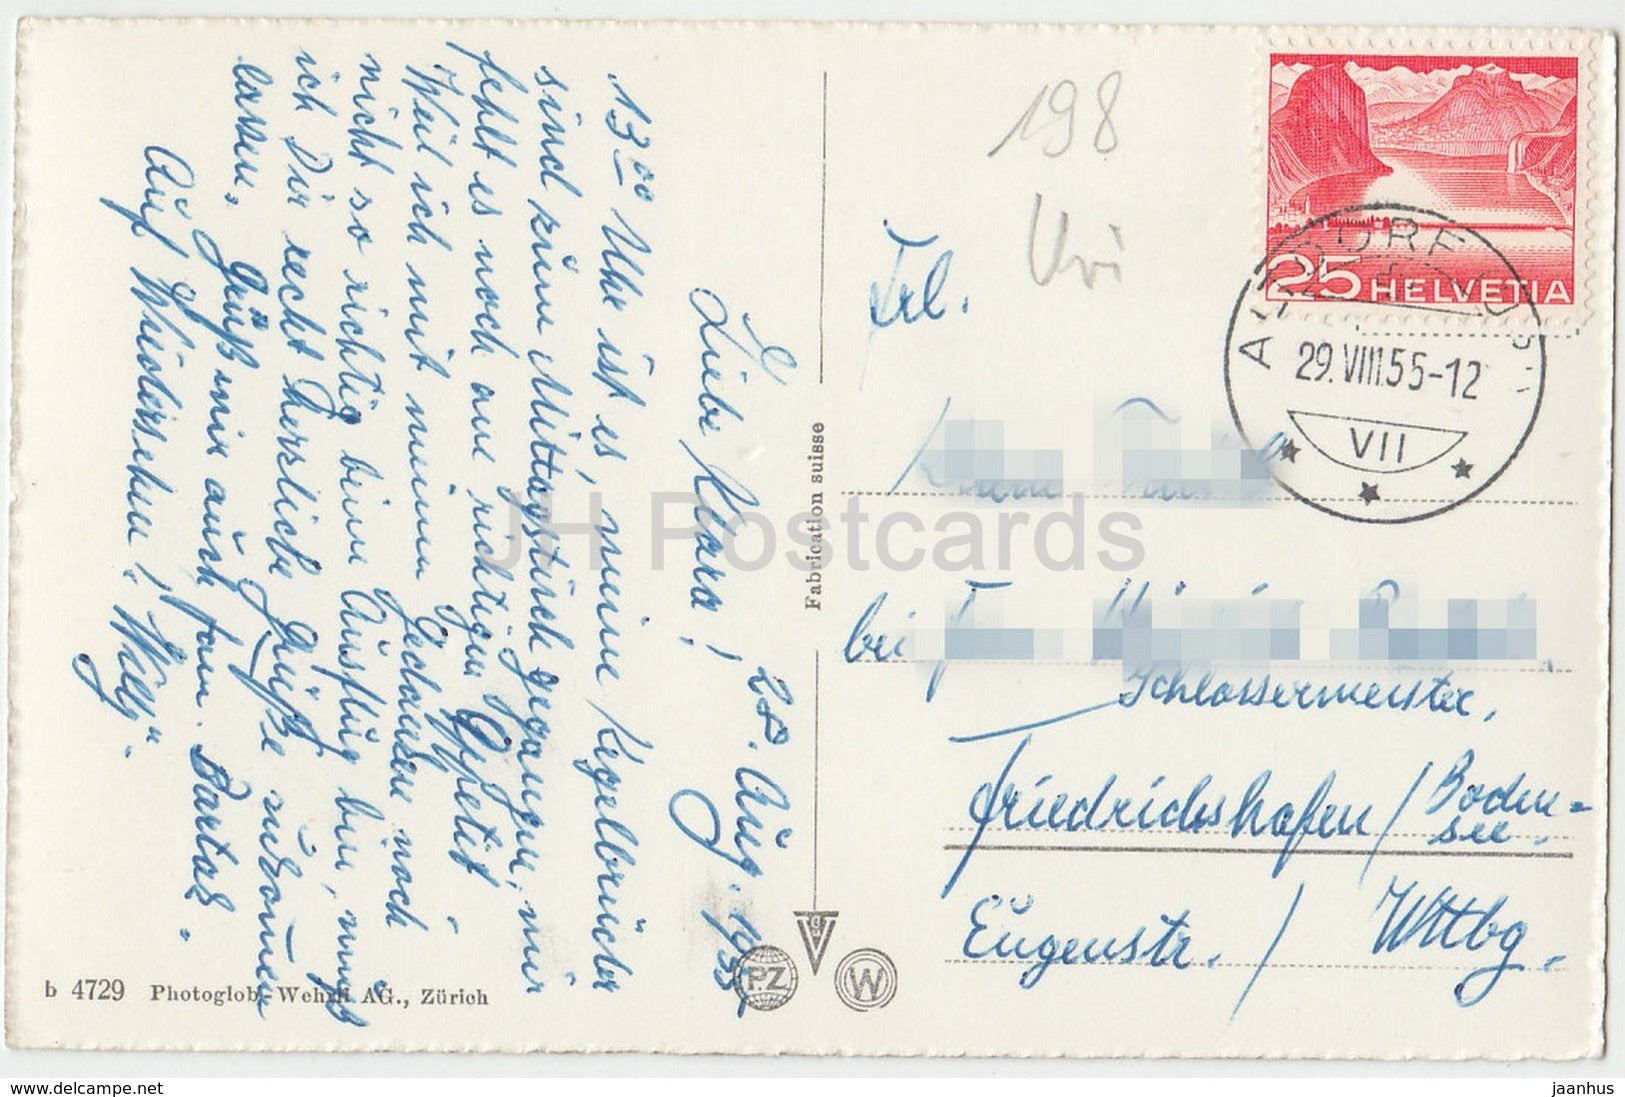 28. Aug. 1955
Liebe Klara!
13⁰⁰ Uhr ist es, meine Kegelbrüder
sind zum Mittagstisch gegangen, mir
fehlt es noch am richtigen Appetit.
Weil ich mit meinen Gedanken noch
nicht so richtig beim Ausflug bin, muß
ich Dir recht herzliche Grüße zukommen
lassen. Grüß mir auch Fam. Bartas.
Auf Wiedersehen! "Willy".
198
Uri
Frl.
bei F
Schlossermeister,
Friedrichshafen / Boden=
see.
Eugenstr. / Wttbg.
25 HELVETIA
ALTDORF
29.VIII.55-12
VII
Fabrication suisse
PZ
W
b 4729 Photoglob-Wehrli AG., Zürich
JH Postcards
www.delcampe.net
jaanhus